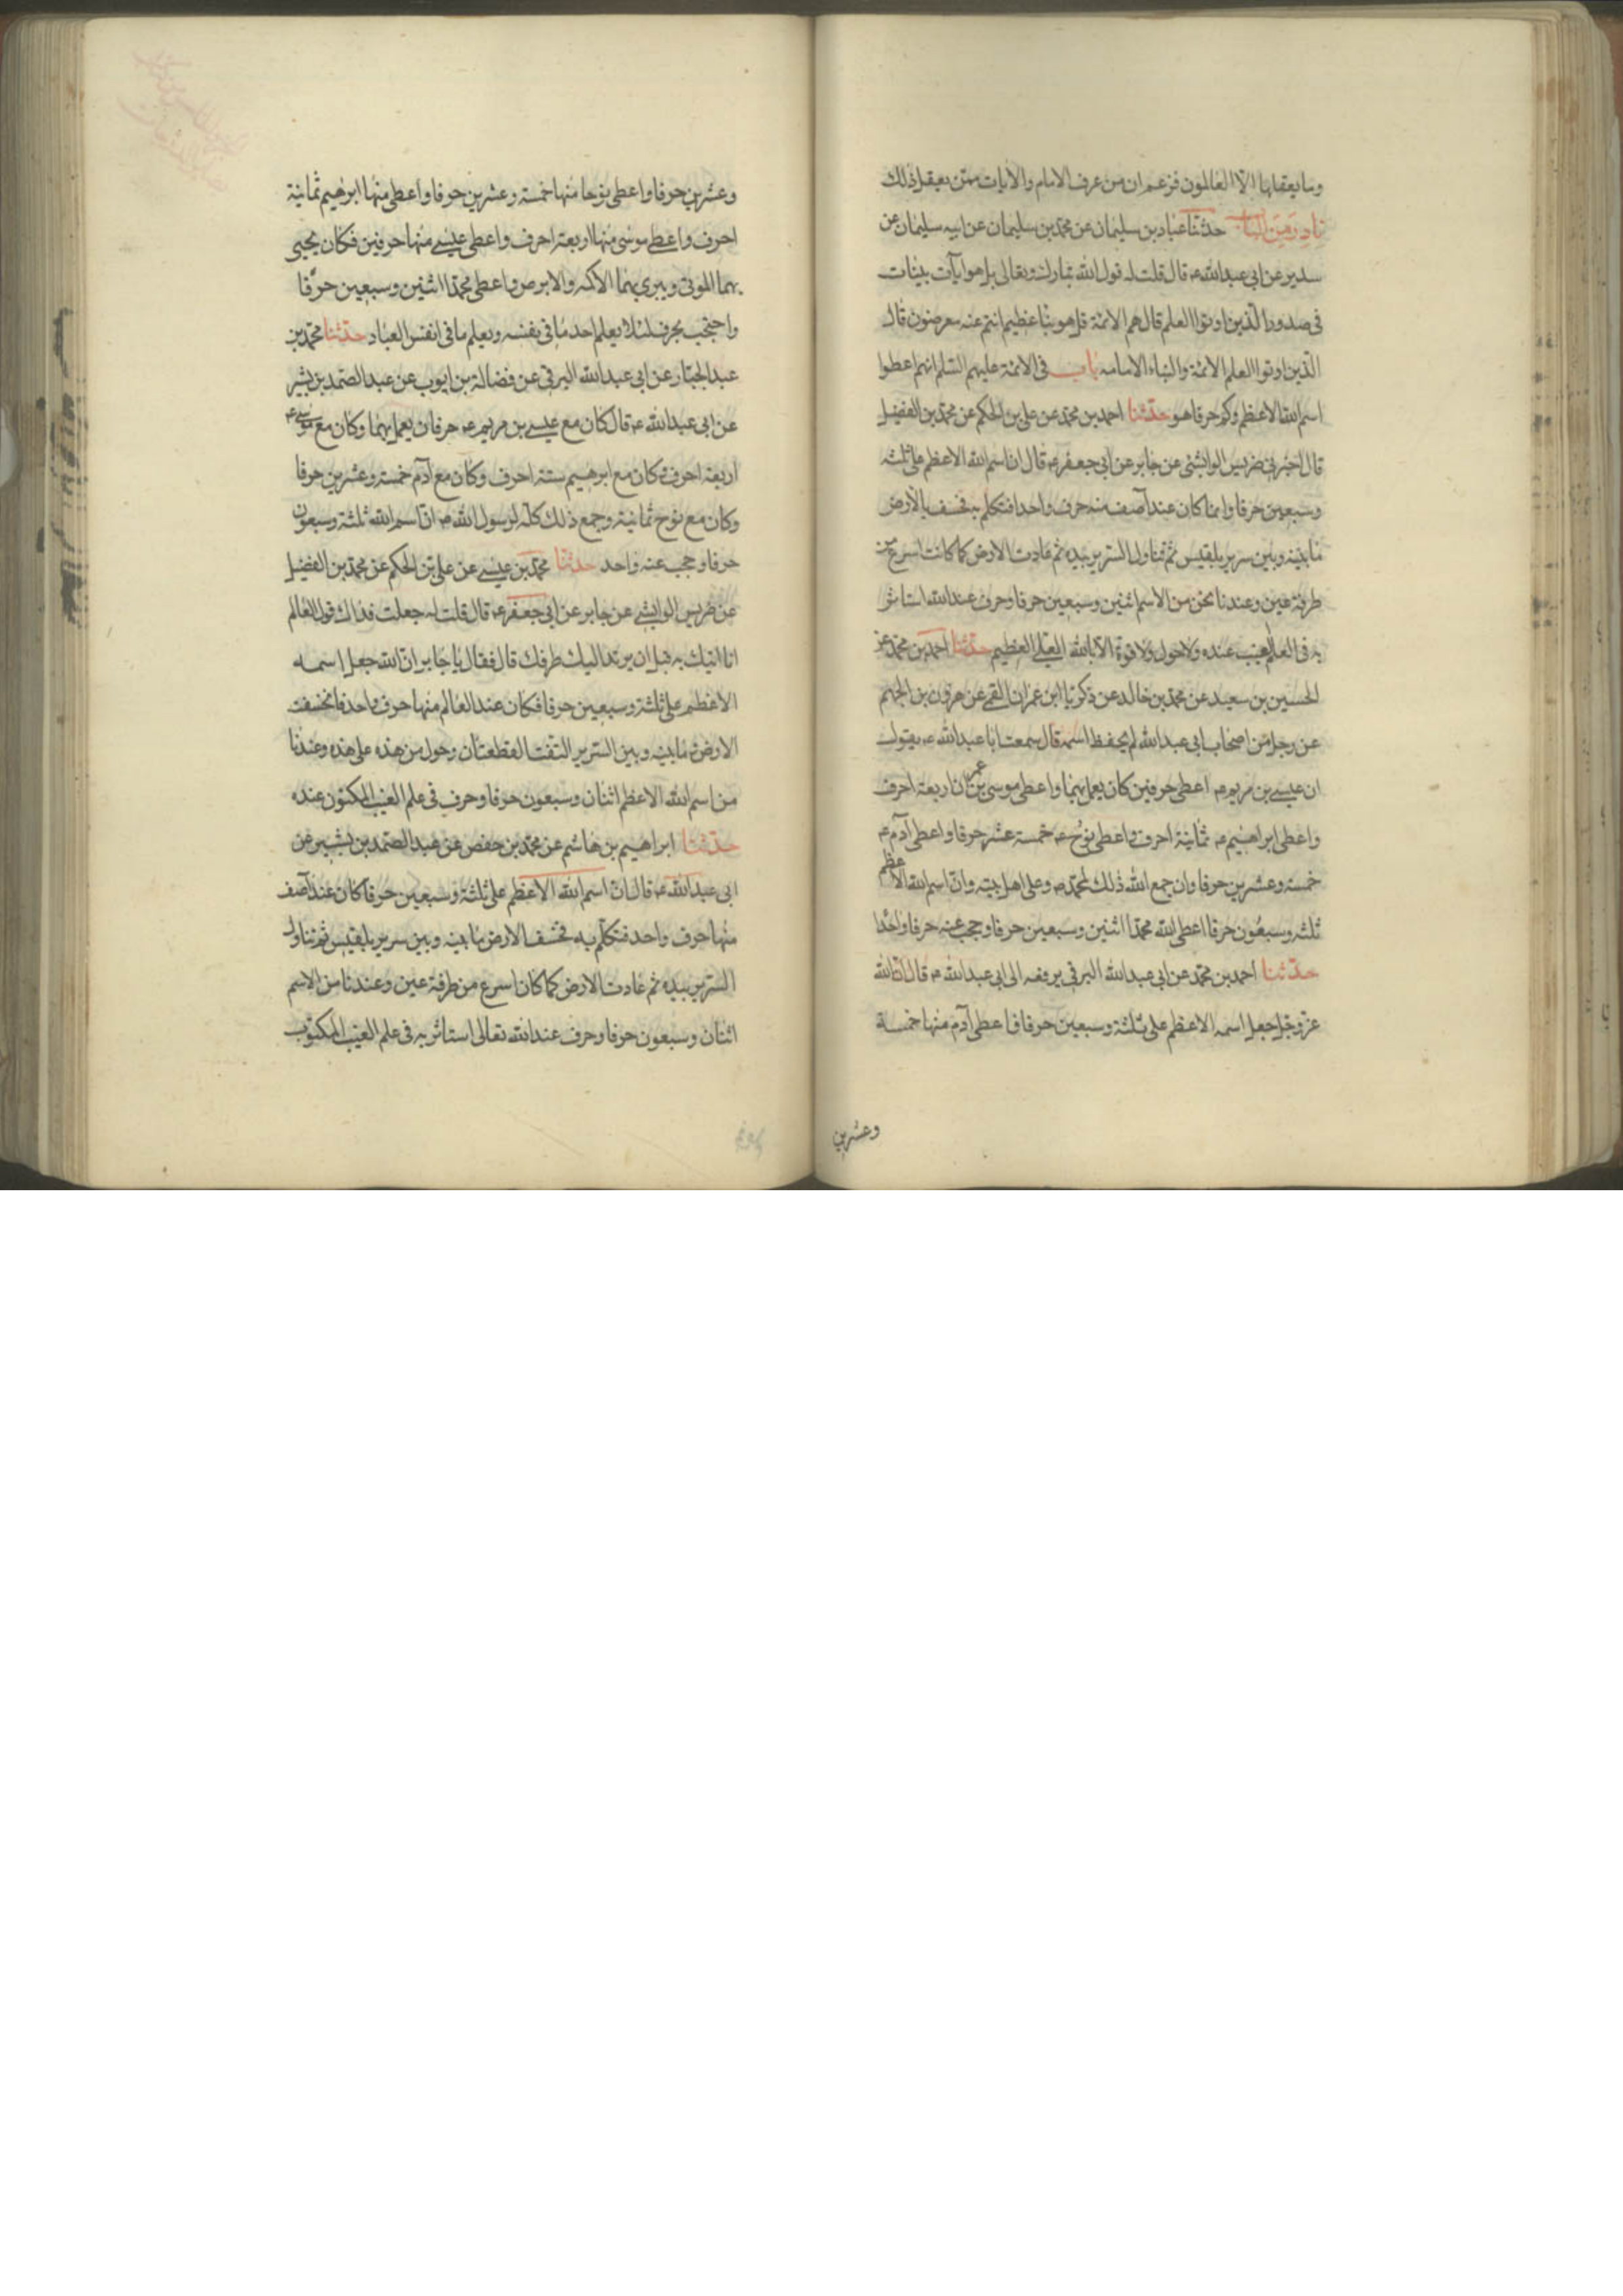 وما يعقلها الا العالمون فزعم ان من عرف الامام والآيات ممن يعقل ذلك
نادر من الباب حدثنا عباد بن سليمان عن محمد بن سليمان عن ابيه سليمان عن
سدير عن ابى عبدالله ع قال قلت له قول الله تبارك وتعالى بل هو آيات بينات
فى صدور الذين اوتوا العلم قال هم الائمة قل هو نبأ عظيم انتم عنه معرضون قال
الذين اوتوا العلم الائمة والنباء الامامه باب فى الائمة عليهم السلم انهم اعطوا
اسم الله الاعظم وكم حرفا هو حدثنا احمد بن محمد عن على بن الحكم عن محمد بن الفضيل
قال اخبرنى ضريس الوابشى عن جابر عن ابى جعفر ع قال ان اسم الله الاعظم على ثلثه
وسبعين حرفا وانما كان عند آصف منه حرف واحد فتكلم به فخسف بالارض
ما بينه وبين سرير بلقيس ثم تناول السرير بيده ثم عادت الارض كما كانت اسرع من
طرفة عين وعندنا نحن من الاسم اثنين وسبعين حرفا وحرف عند الله استاثر
به فى العلم الغيب عنده ولا حول ولا قوة الا بالله العلى العظيم حدثنا احمد بن محمد عن
الحسين بن سعيد عن محمد بن خالد عن زكريا ابن عمران القمى عن هرون بن الجهم
عن رجل من اصحاب ابى عبدالله لم يحفظ اسمه قال سمعت ابا عبدالله ع يقول
ان عيسى بن مريم ع اعطى حرفين كان يعمل بهما واعطى موسى بن عمران اربعة احرف
واعطى ابراهيم ع ثمانية احرف واعطى نوح ع خمسة عشر حرفا واعطى آدم ع
خمسة وعشرين حرفا وان جمع الله ذلك لمحمد ص وعلى اهل بيته وان اسم الله الاعظم
ثلثه وسبعون حرفا اعطى الله محمدا اثنين وسبعين حرفا وحجب عنه حرفا واحدا
حدثنا احمد بن محمد عن ابى عبدالله البرقى يرفعه الى ابى عبدالله ع قال ان الله
عز وجل جعل اسمه الاعظم على ثلثة وسبعين حرفا فاعطى آدم منها خمسة
وعشرين
وعشرين حرفا واعطى نوحا منها خمسة وعشرين حرفا واعطى منها ابرهيم ثمانية
احرف واعطى موسى منها اربعة احرف واعطى عيسى منها حرفين فكان يحيى
بهما الموتى ويبرى بهما الاكمه والابرص واعطى محمدا اثنين وسبعين حرفا
واحتجب بحرف لئلا يعلم احد ما فى نفسه ويعلم ما فى انفس العباد حدثنا محمد بن
عبدالجبار عن ابى عبدالله البرقى عن فضالة بن ايوب عن عبدالصمد بن بشير
عن ابى عبدالله ع قال كان مع عيسى بن مريم ع حرفان يعمل بهما وكان مع موسى ع
اربعة احرف وكان مع ابرهيم ستة احرف وكان مع آدم خمسة وعشرين حرفا
وكان مع نوح ثمانية وجمع ذلك كله لرسول الله ص ان اسم الله ثلثة وسبعون
حرفا وحجب عنه واحد حدثنا محمد بن عيسى عن على بن الحكم عن محمد بن الفضيل
عن ضريس الوابشى عن جابر عن ابى جعفر ع قال قلت له جعلت فداك قول العالم
انا اتيك به قبل ان يرتد اليك طرفك قال فقال يا جابر ان الله جعل اسمه
الاعظم على ثلثة وسبعين حرفا فكان عند العالم منها حرف واحد فانخسفت
الارض ما بينه وبين السرير التفت القطعتان وحول من هذه على هذه وعندنا
من اسم الله الاعظم اثنان وسبعون حرفا وحرف فى علم الغيب المكنون عنده
حدثنا ابراهيم بن هاشم عن محمد بن حفص عن عبدالصمد بن بشير عن
ابى عبدالله ع قال ان اسم الله الاعظم على ثلثة وسبعين حرفا كان عند آصف
منها حرف واحد فتكلم به فخسف الارض ما بينه وبين سرير بلقيس ثم تناول
السرير بيده ثم عادت الارض كما كان اسرع من طرفة عين وعندنا من الاسم
اثنان وسبعون حرفا وحرف عند الله تعالى استاثر به فى علم الغيب المكتوب